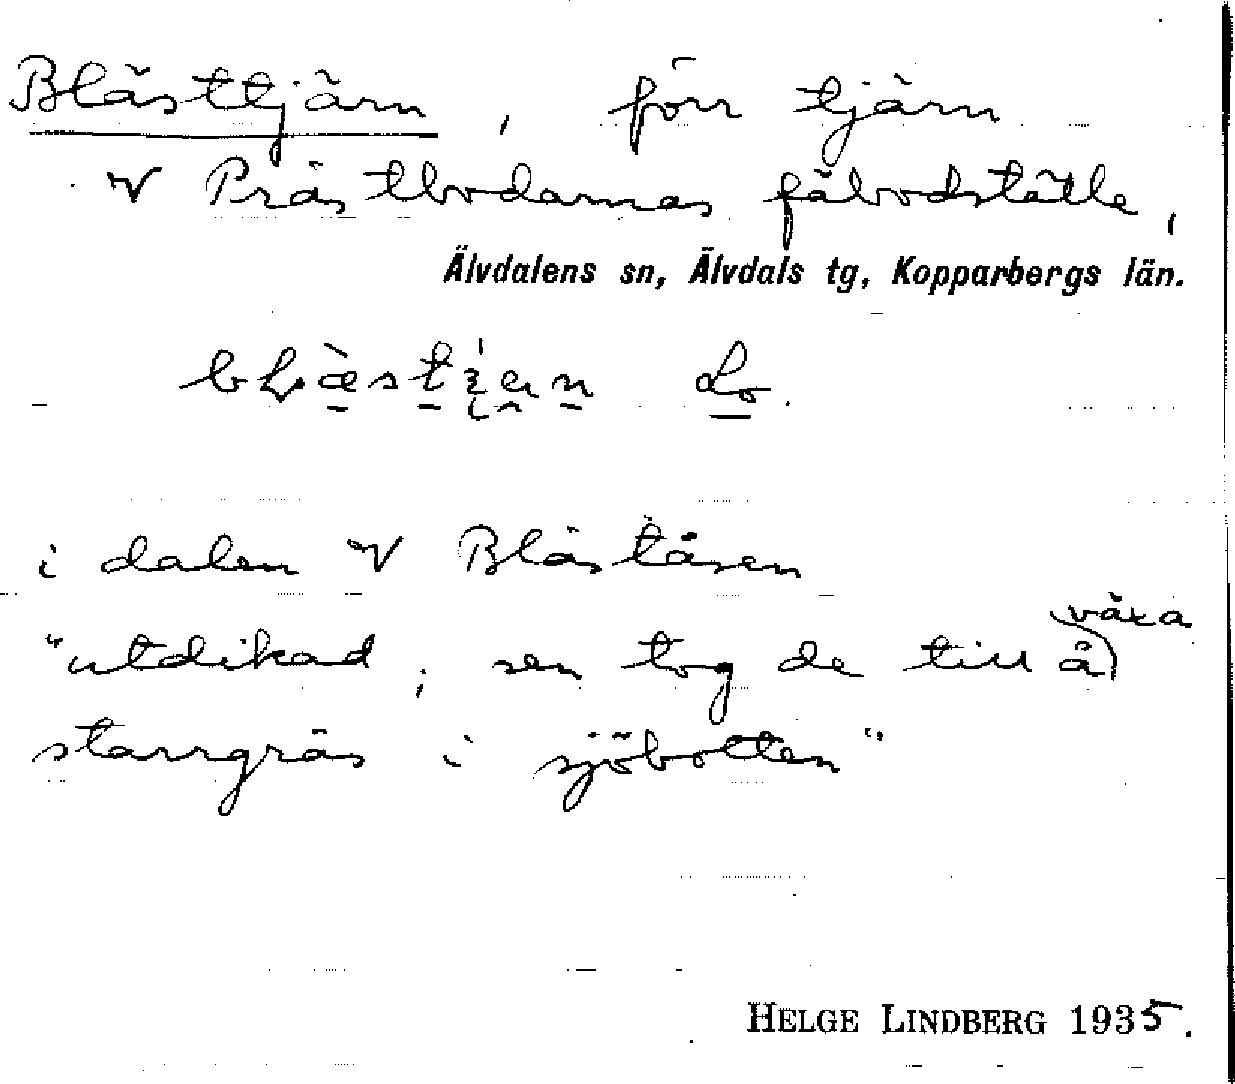 Blästtjärn, förr tjärn
V Prästbodarnas fäbodställe,
Älvdalens sn, Älvdals tg, Kopparbergs län.
Lo.
i dalen V Bläståsen
"utdikad, sen tog de till å växa
starrgräs i sjöbotten"
HELGE LINDBERG 1935.